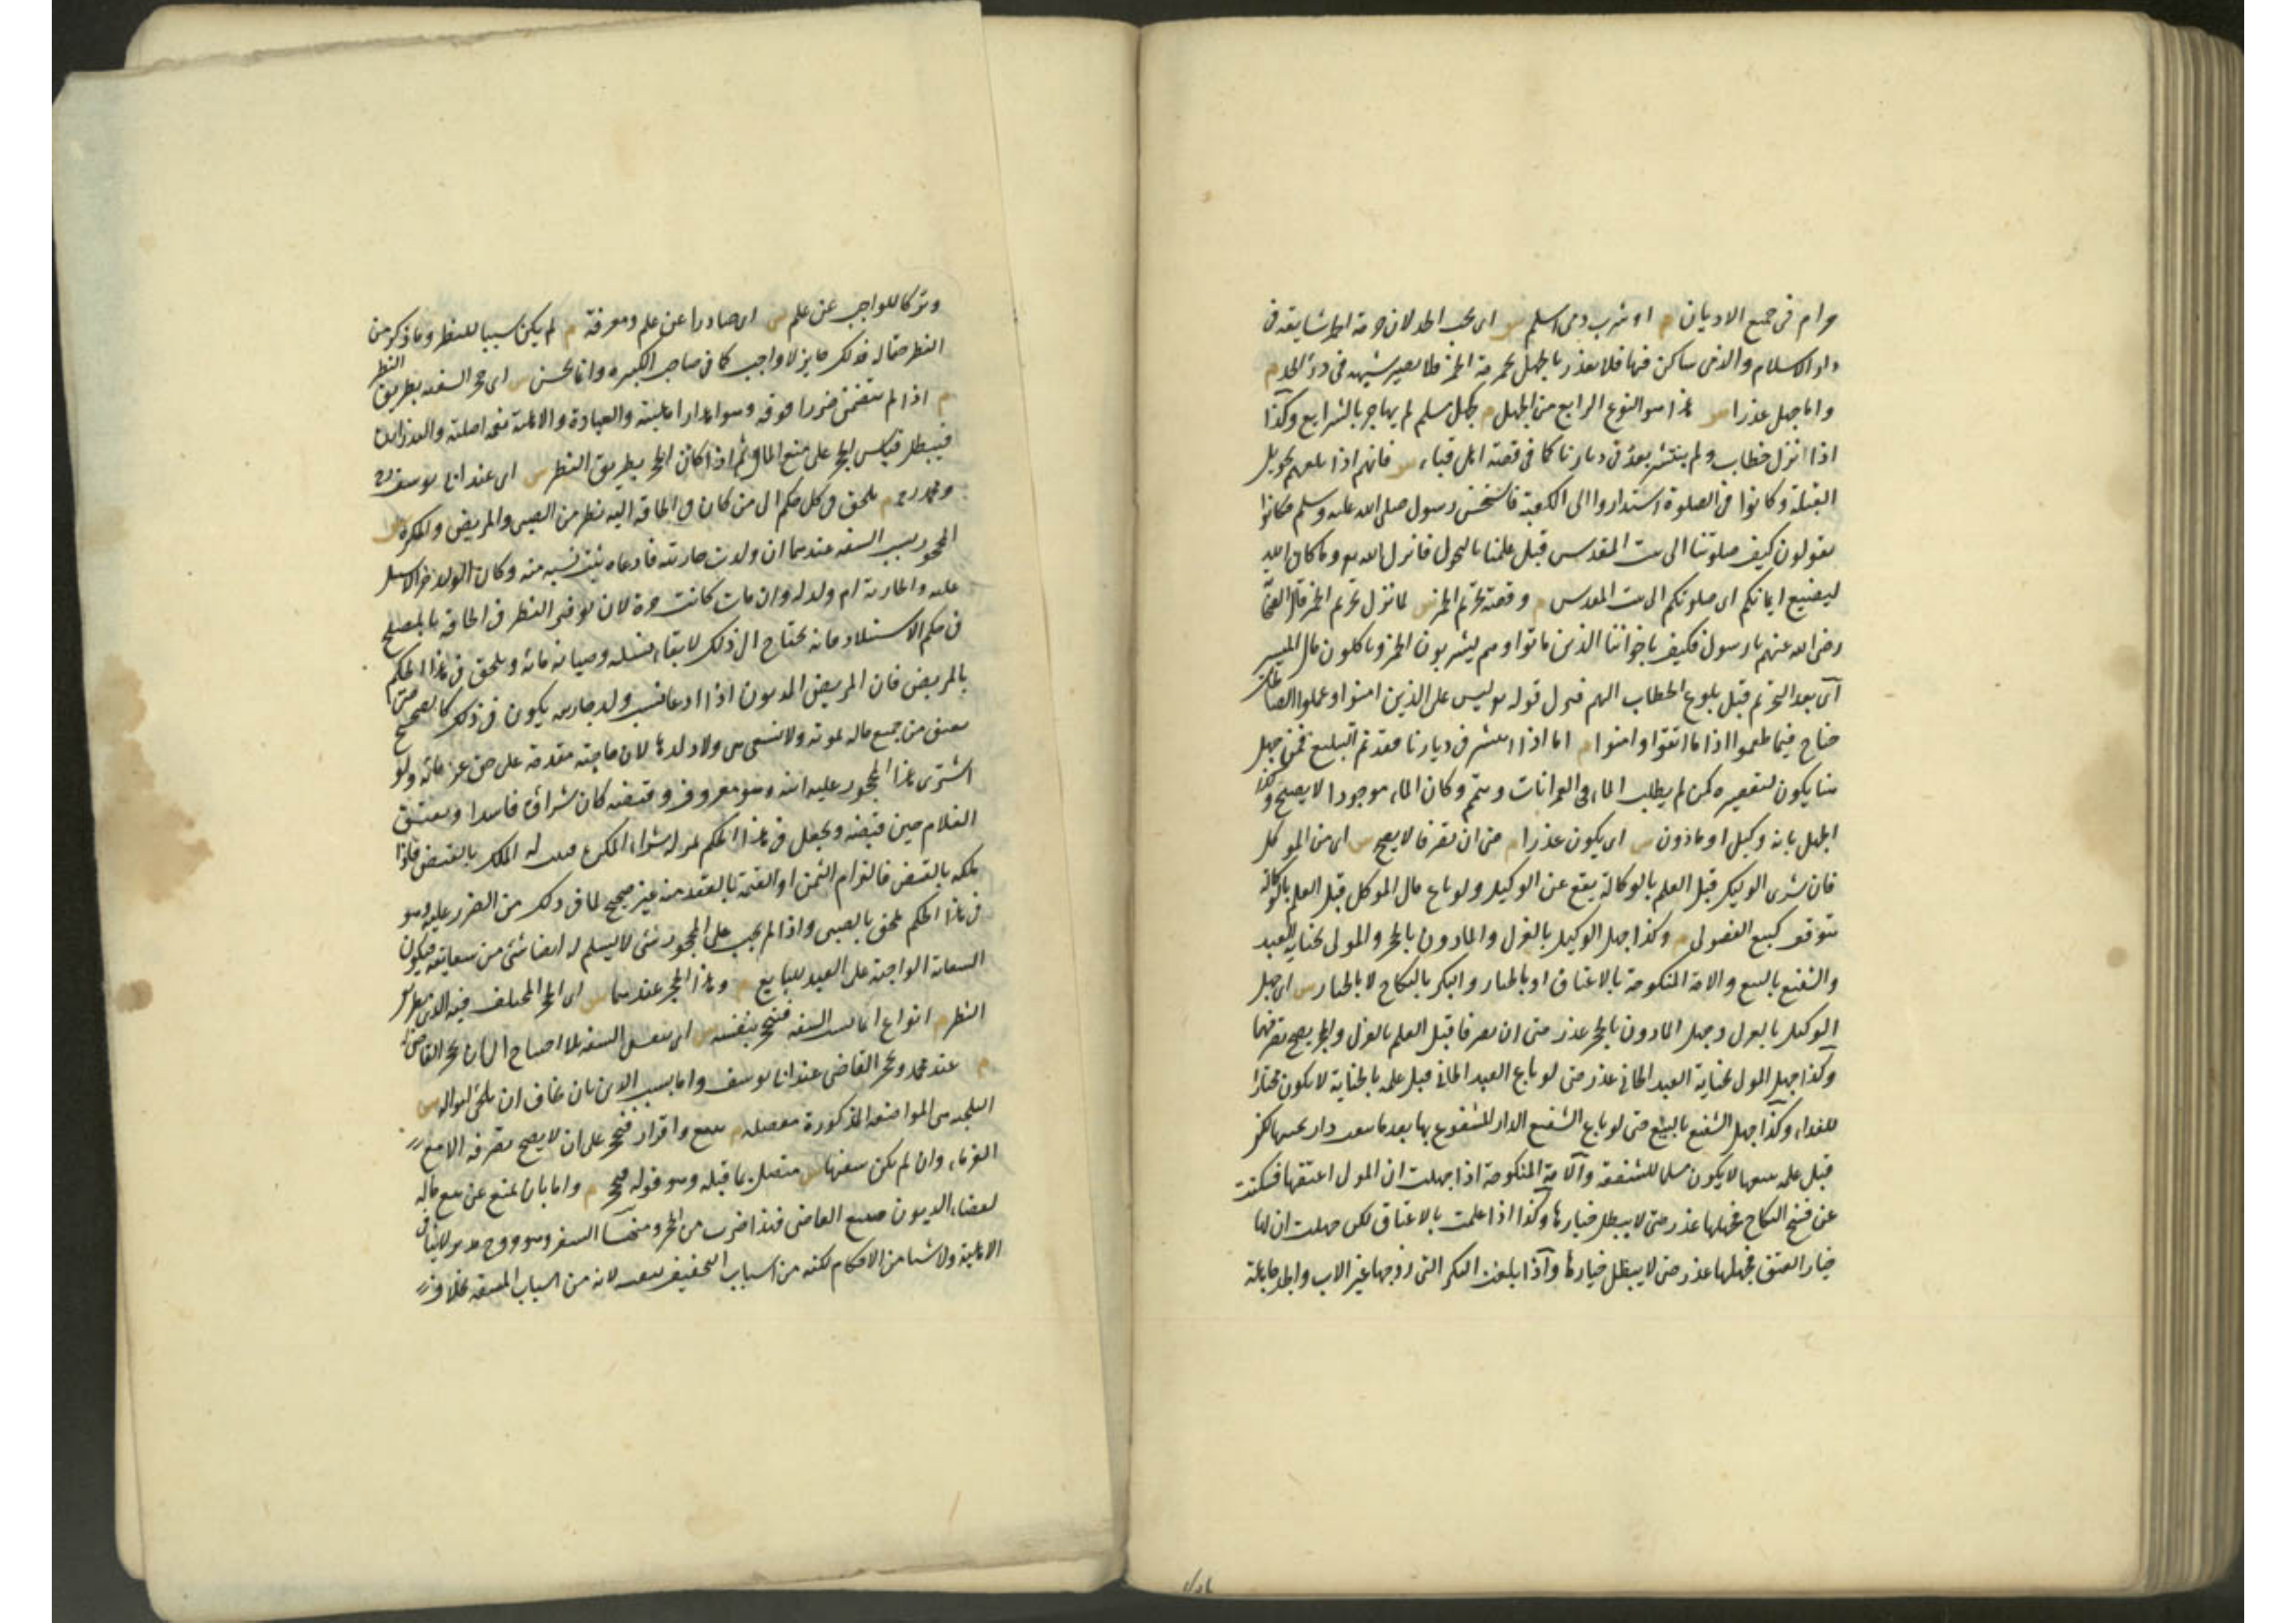 حرام فى جميع الاديان م او شرب ذمى اسلم س اى يجب الحد لان حرمة الخمر شايعة فى
دار الاسلام والذمى ساكن فيها فلا يعذر بالجهل بحرمة الخمر فلا يصير شبهة فى درء الحد م
واما جهل عذرا س هذا هو النوع الرابع من الجهل م كجهل مسلم لم يهاجر بالشرايع وكذا
اذا نزل خطاب ولم ينتشر بعد فى ديارنا كما فى قصة اهل قباء س فانهم اذا بلغهم تحويل
القبلة وكانوا فى الصلوة استداروا الى الكعبة فاستحسن رسول صلى الله عليه وسلم فكانوا
يقولون كيف صلوتنا الى بيت المقدس قبل علمنا بالتحول فانزل الله وما كان الله
ليضيع ايمانكم اى صلوتكم الى بيت المقدس م وقصة تحريم الخمر س لما نزل تحريم الخمر قال
رضى الله عنهم يا رسول فكيف باخواننا الذين ماتوا وهم يشربون الخمر وياكلون مال الميسر
اى بعد التحريم قبل بلوغ الخطاب اليهم فنزل قوله ليس على الذين امنوا وعملوا الصالحات
جناح فيما طعموا اذا ما اتقوا وامنوا م اما اذا انتشر فى ديارنا فقد تم التبليغ فمن جهل
هنا يكون لتقصيره كمن لم يطلب الماء فى العمرانات وتيمم وكان الماء موجودا لا يصح وكذا
الجهل بانه وكيل او ماذون س اى يكون عذرا م حتى ان تصرفا لا يصح س اى من الموكل
فان شرى الوكيل قبل العلم بالوكالة يقع عن الوكيل ولو باع مال الموكل قبل العلم بالوكالة
يتوقف كبيع الفضولى م وكذا جهل الوكيل بالعزل والماذون بالحجر والمولى بجناية العبد
والشفيع بالبيع والامة المنكوحة بالاعتاق او بالخيار والبكر بالنكاح لا بالخيار س اى جهل
الوكيل بالعزل وجهل الماذون بالحجر عذر حتى ان تصرفا قبل العلم بالعزل والحجر يصح تصرفهما
وكذا جهل المولى بجناية العبد الجانى عذر حتى لو باع العبد الجانى قبل علمه بالجناية لا يكون مختارا
للفداء وكذا جهل الشفيع بالبيع حتى لو باع الشفيع الدار المشفوع بها بعد ما بيعت دار بجنبها لكن
قبل علمه ببيعها لا يكون مسلما للشفعة والامة المنكوحة اذا جهلت ان المولى اعتقها فسكتت
عن فسخ النكاح فجهلها عذر حتى لا يبطل خيارها وكذا اذا علمت بالاعتاق لكن جهلت ان لها
خيار العتق فجهلها عذر حتى لا يبطل خيارها واذا بلغت البكر التى زوجها غير الاب والجد جاهلة
وتركا للواجب عن علم س اى صادرا عن علم ومعرفة م لم يكن سببا للنظر وما ذكر من
النظر حقا له فذلك جايز لا واجب كما فى صاحب الكبيرة وانما يحسن س اى حجر السفه بطريق النظر
م اذا لم يتضمن ضررا فوقه وهو اهدار اهليته والعبادة والاهلية نعمة اصلية
فيبطل قياس الحجر على منع المال ثم اذا كان الحجر بطريق النظر س اى عند ابى يوسف
ومحمد م يلحق فى كل حكم الى من كان فى الحاقه اليه نظر من الصبى والمريض والمكره س
المحجور بسبب السفه عندهما ان ولدت جاريته فادعاه يثبت نسبه منه وكان الولد حرا لا سبيل
عليه والجارية ام ولد له وان مات كانت حرة لان توفير النظر فى الحاقه بالمصلح
فى حكم الاستيلاد فانه يحتاج الى ذلك لابقاء نسله وصيانة مائه ويلحق فى هذا الحكم
بالمريض فان المريض المديون اذا ادعى نسب ولد جاريته يكون فى ذلك كالصحيح حتى
تعتق من جميع ماله بموته ولا تسعى هى ولا ولدها لان حاجته مقدمة على حق غرمائه ولو
اشترى هذا المحجور عليه ابنه وهو معروف وقبضه كان شراؤه فاسدا ويعتق
الغلام حين قبضه ويجعل فى هذا الحكم بمنزلة شراء المكره فيثبت له الملك بالقبض فاذا
ملكه بالقبض فالتزام الثمن او القيمة بالعقد منه غير صحيح لما فى ذلك من الضرر عليه وهو
فى هذا الحكم ملحق بالصبى واذا لم يجب على المحجور شئ لا يسلم له ايضا شئ من سعايته فيكون
السعاية الواجبة على العبد للبايع م وهذا الحجر عندهما س اى الحجر المختلف فيه الذى بطريق
النظر م انواع اما بسبب السفه فينحجر بنفسه س اى بنفس السفه بلا احتياج الى ان يحجر القاضى
م عند محمد وبحجر القاضى عند ابى يوسف واما بسبب الدين بان يخاف ان يلجئ امواله س
التلجئة هى المواضعة المذكورة مفصلة م ببيع واقرار فيحجر على ان لا يصح تصرفه الا مع
الغرماء وان لم يكن سفيها س متصل بما قبله وهو قوله فيحجر م واما بان يمتنع عن بيع ماله
لقضاء الديون فيبيع القاضى فهذا ضرب من الحجر ومنها السفر وهو خروج مديد لا ينافى
الاهلية ولا شيا من الاحكام لكنه من اسباب التخفيف بنفسه لانه من اسباب المشقة بخلاف